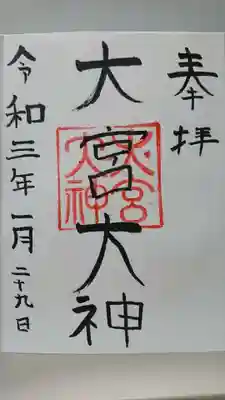 奉拝
大宮大神
令和三年一月二十九日
大宮大神